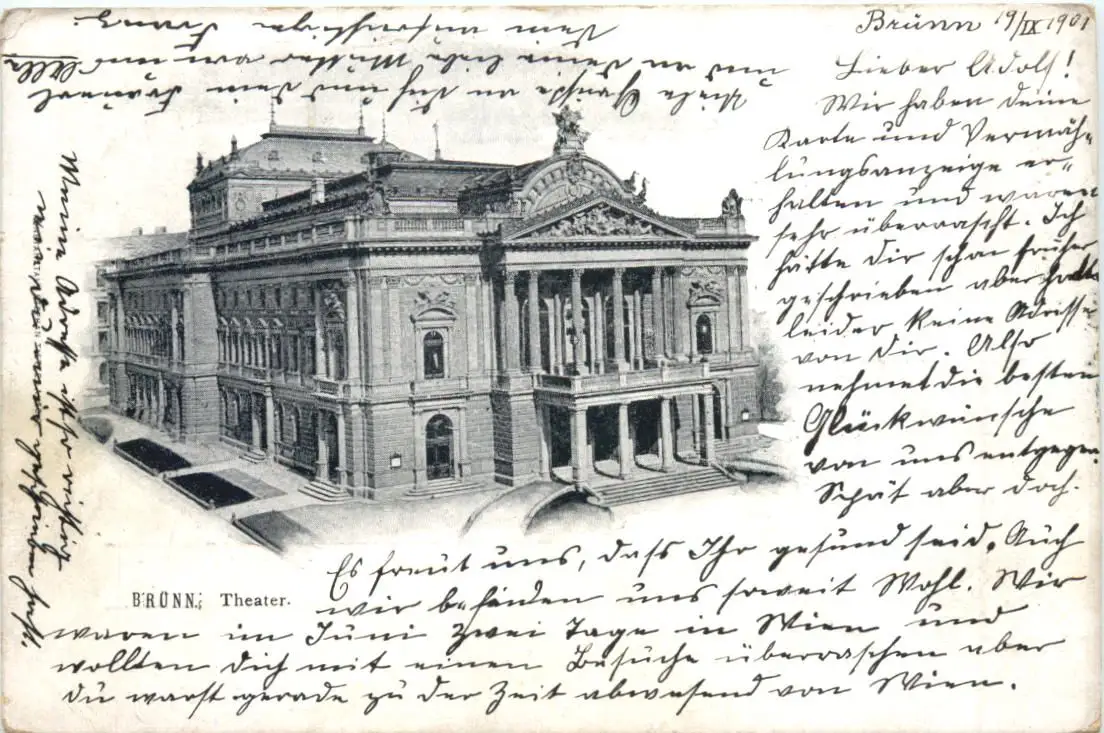 Brünn 19/IX 1901
Lieber Adolf!
Wir haben deine
Karte und Vermäh-
lungsanzeige er-
halten und waren
sehr überrascht. Ich
hätte dir schon früher
geschrieben aber hatte
leider keine Adresse
von dir. Also
nehmet die besten
Glückwünsche
von uns entgegen.
Spät aber doch.
Es freut uns, dass Ihr gesund seid. Auch
wir befinden uns soweit Wohl. Wir
waren im Juni zwei Tage in Wien und
wollten dich mit einen Besuche überraschen aber
du warst gerade zu der Zeit abwesend von Wien.
BRÜNN, Theater.
Meine Adresse ist so richtig
wie du mir geschrieben hast.
Viele Grüsse an dich und dein
und an deine liebe Mutter von uns Alle
Dein aufrichtiger Franz.